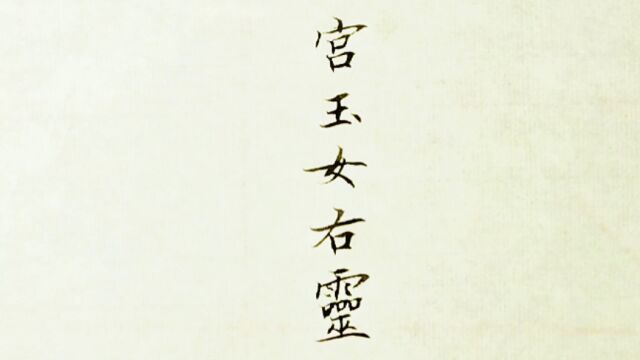 宮玉女右靈